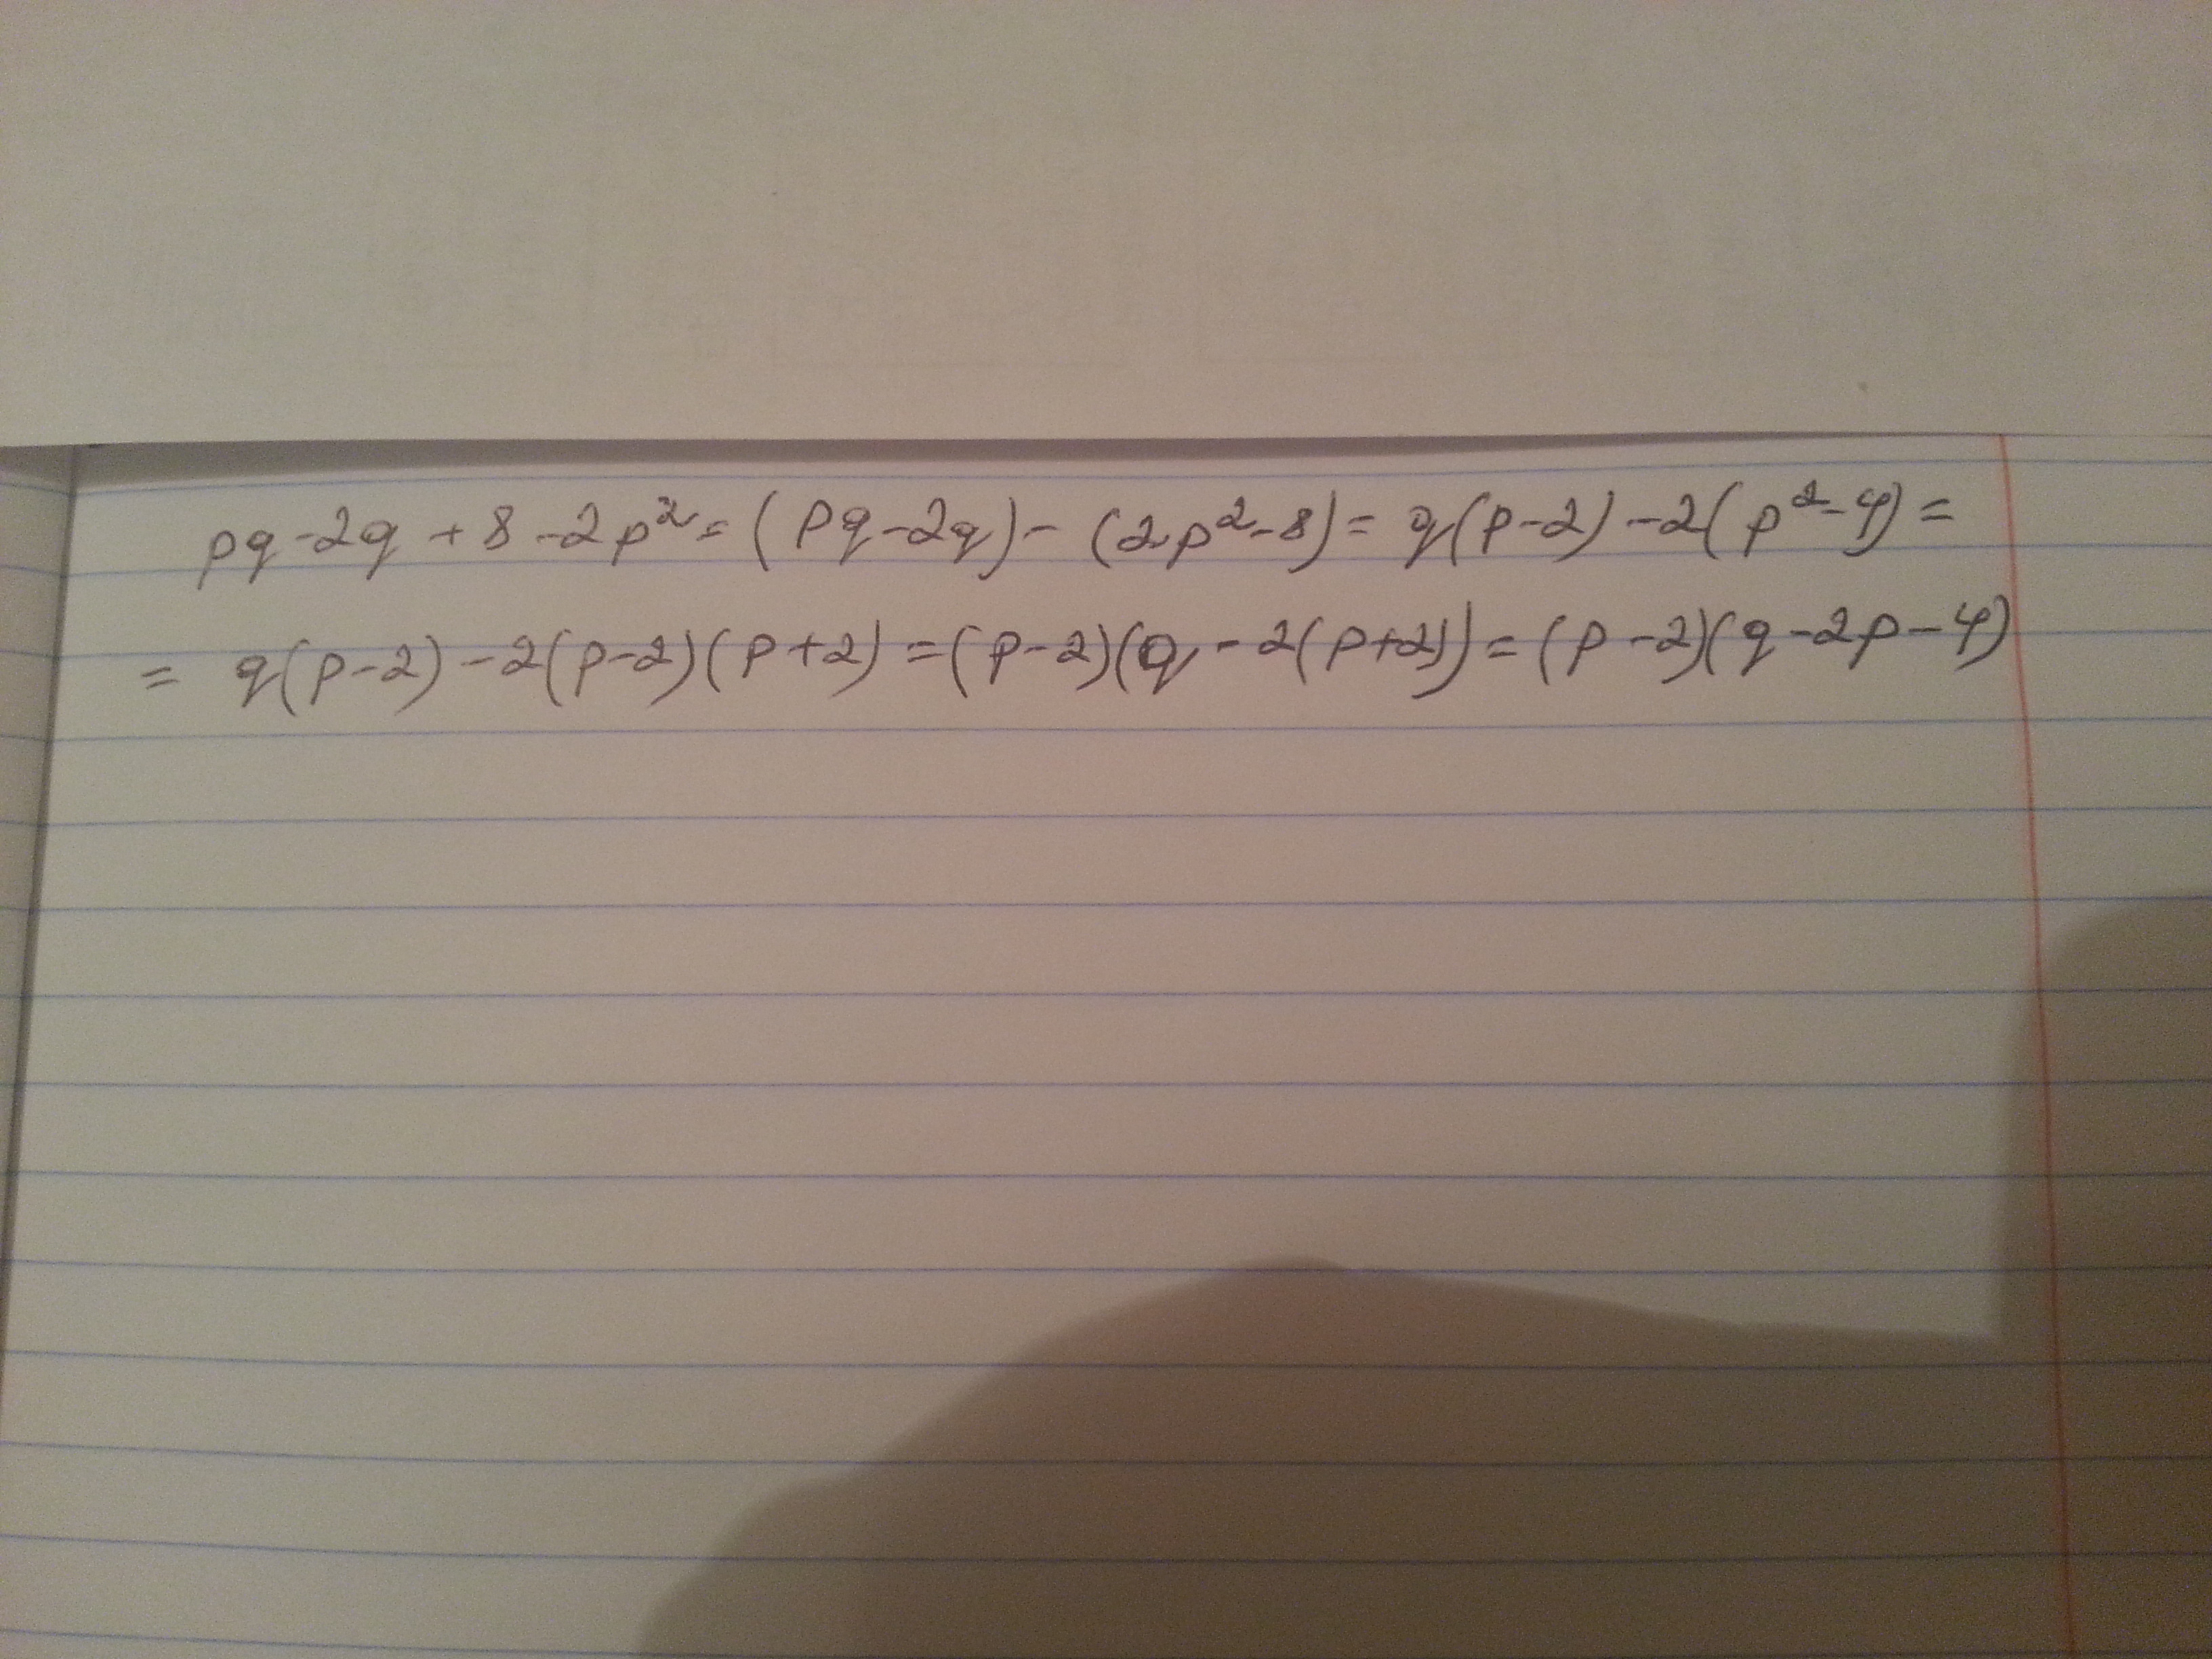 pq-2q+8-2p²=(pq-2q)-(2p²-8)=q(p-2)-2(p²-4)=
=q(p-2)-2(p-2)(p+2)=(p-2)(q-2(p+2))=(p-2)(q-2p-4)